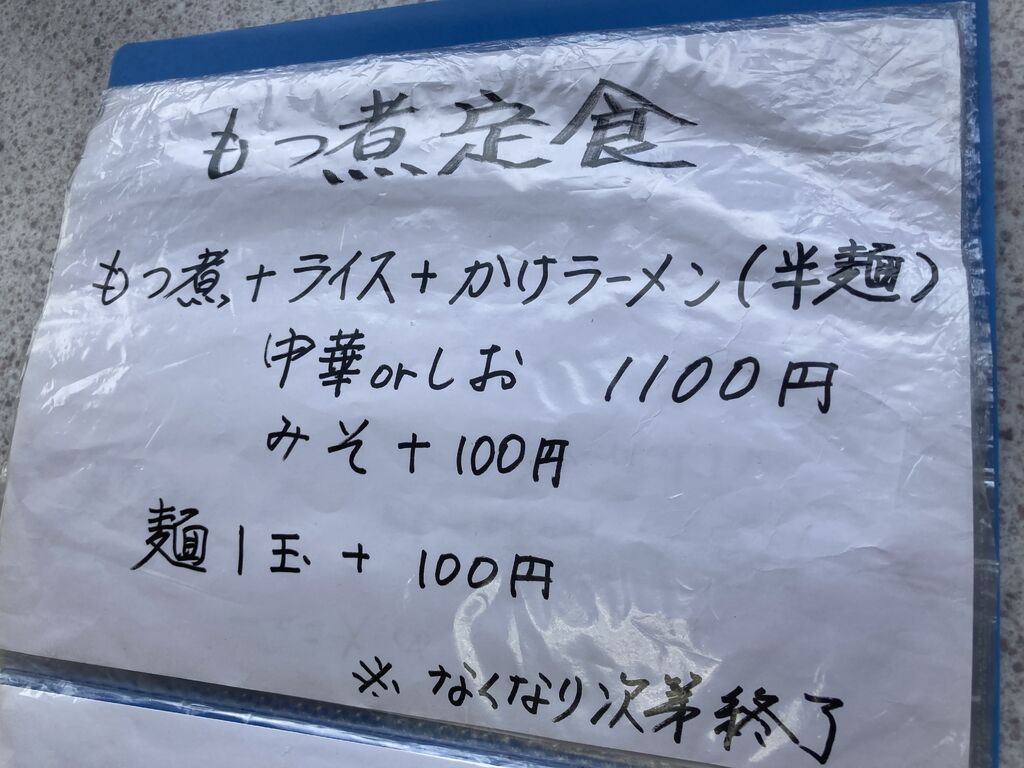 もつ煮定食
もつ煮+ライス+かけラーメン(半麺)
中華orしお 1100円
みそ+100円
麺1玉+100円
※なくなり次第終了